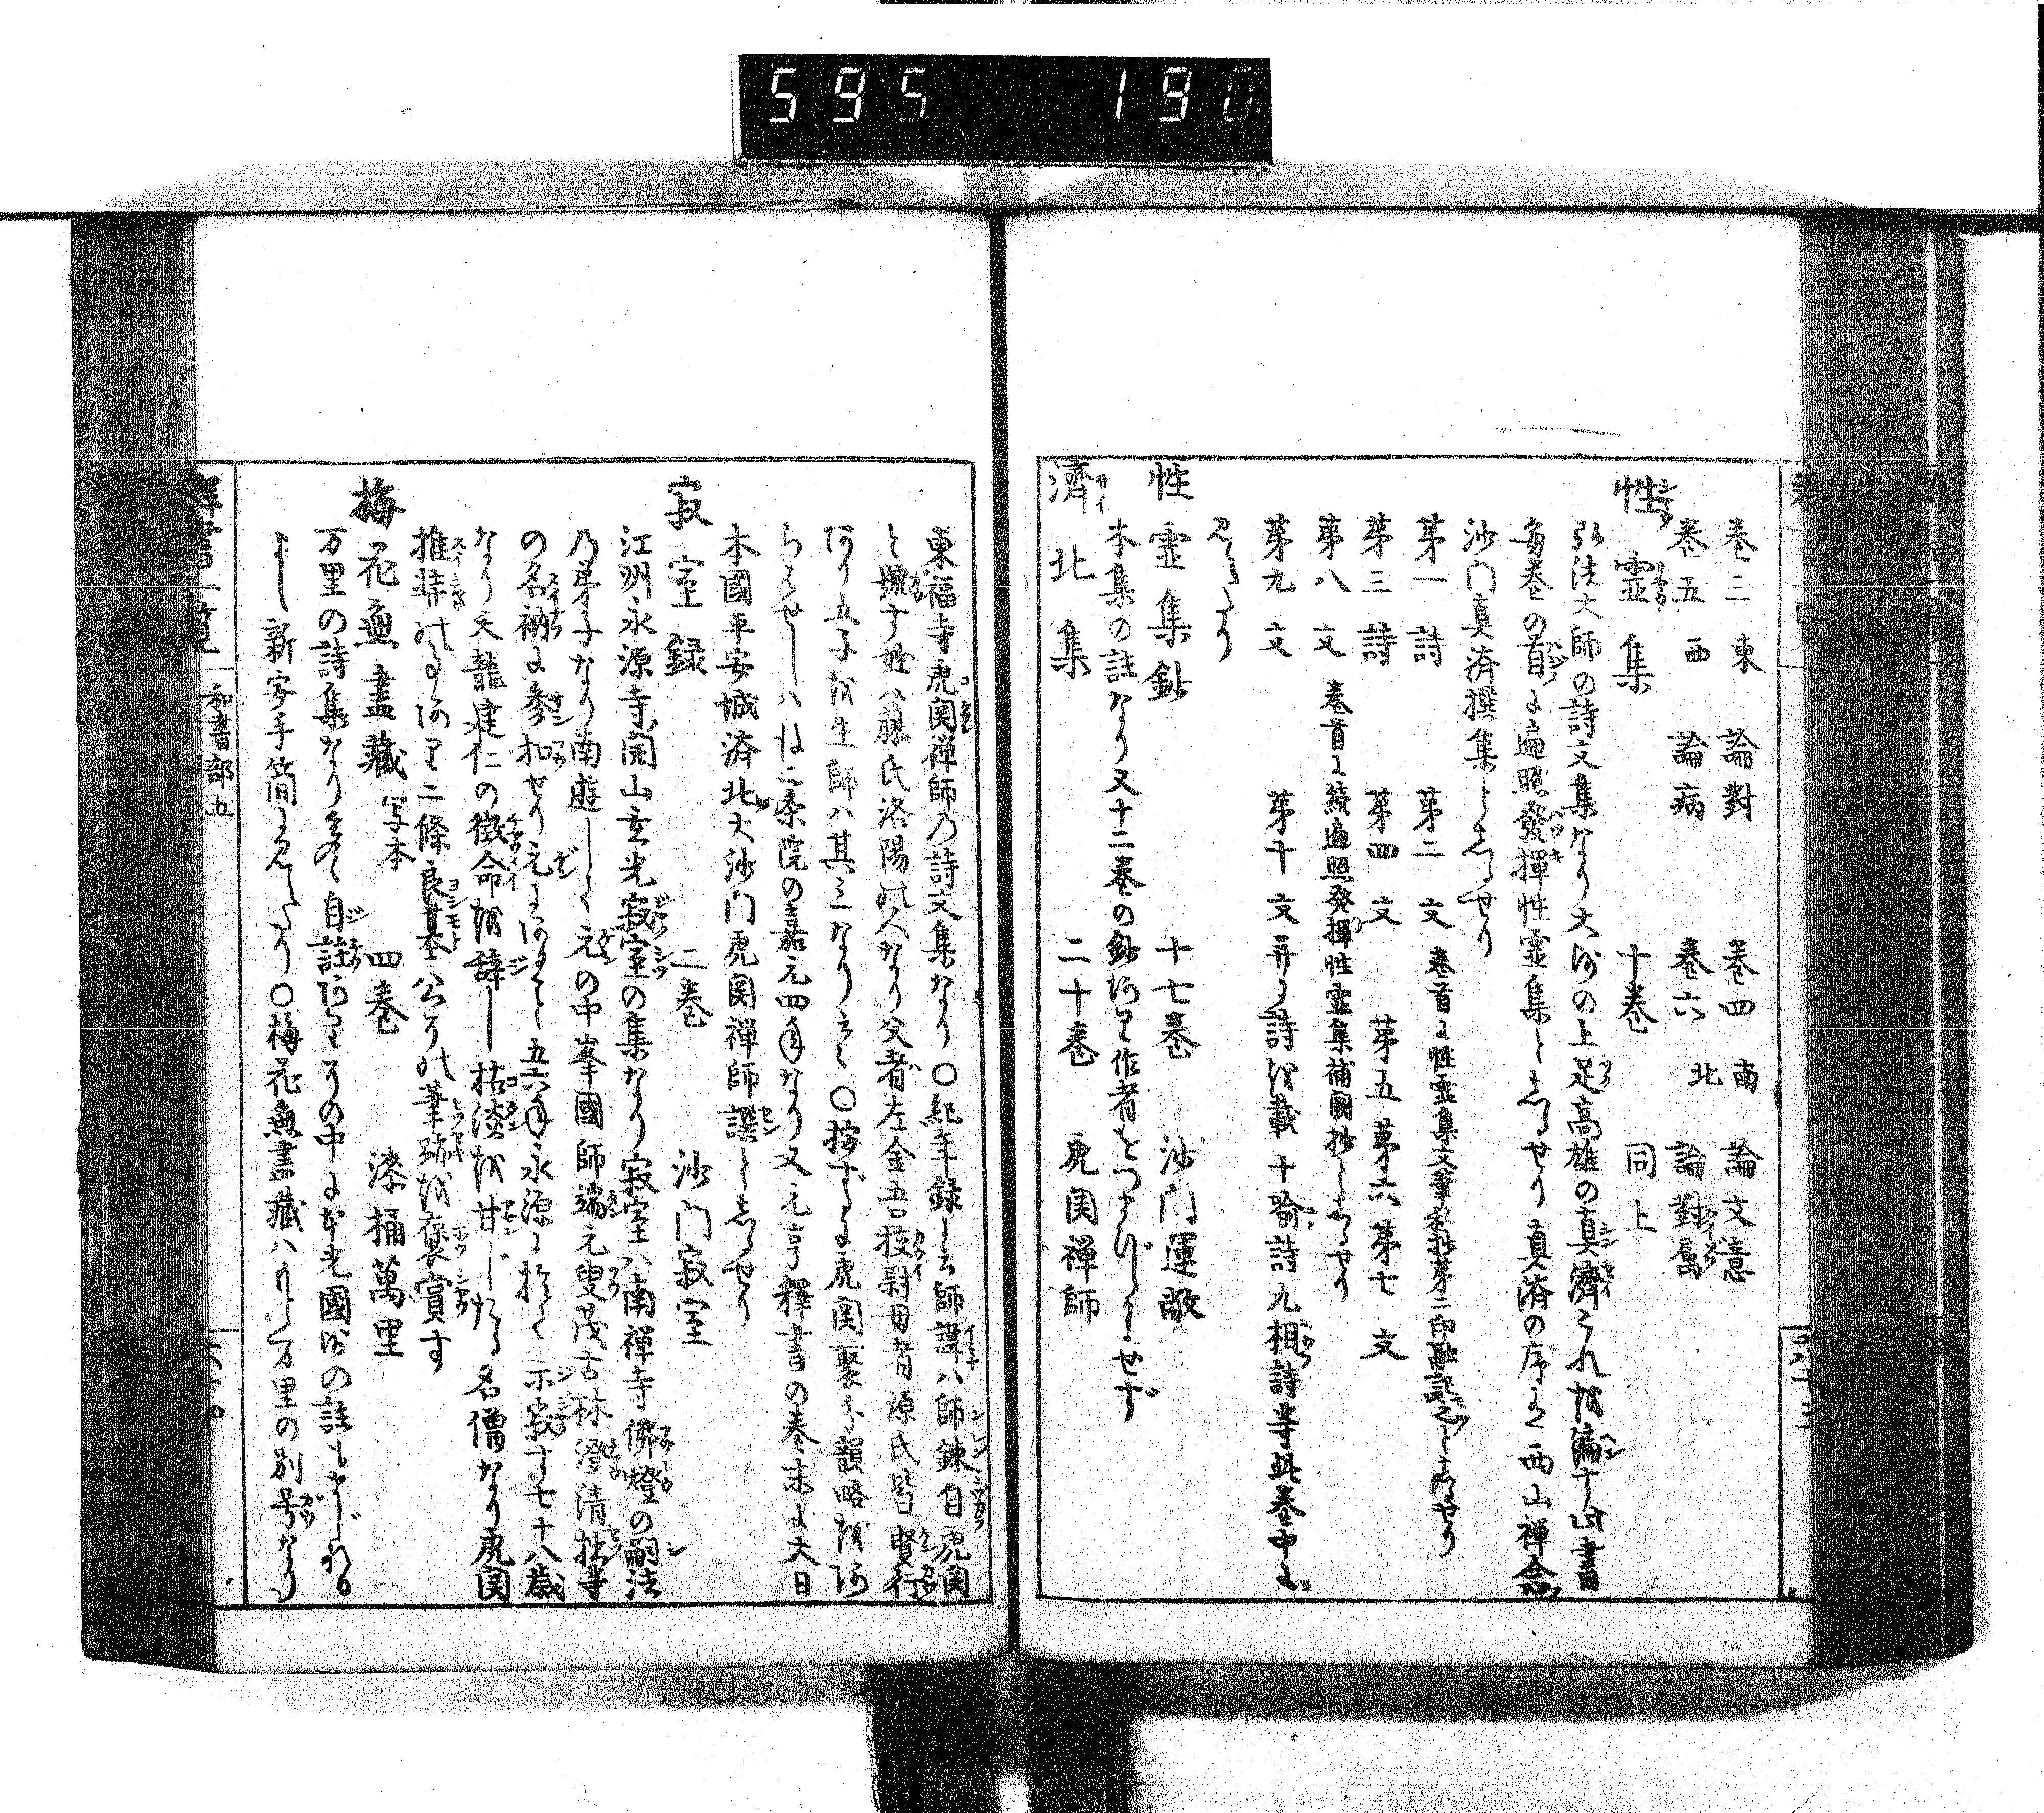 595 190
巻三 東 論對 巻四 南 論文意
巻五 西 論病 巻六 北 論對属
性霊集 十巻 同上
弘法大師の詩文集なり大師の上足高雄の真濟これを編す此書
毎巻の首に遍照發揮性霊集としるせり真済の序に西山禅念
沙門真済撰集としるせり
第一 詩 第二 文 巻首に性霊集文筆
第三 詩 第四 文 第五 第六 第七 文
第八 文 巻首に続遍照発揮性霊集補闕抄としるせり
第九 文 第十 文并に詩を載 十喩詩九相詩等此巻中に
見えたり
性霊集鈔 十七巻 沙門運敞
本集の註なり又十二巻の鈔あり作者をつまびらかにせず
濟北集 二十巻 虎関禅師
東福寺虎関禅師の詩文集なり○紀年録に云師諱ハ師錬自虎関
と號す姓ハ藤氏洛陽の人なり父者左金吾校尉母者源氏皆賢行
あり五子を生師ハ其三なり云々○按ずるに虎関聚分韻略をあ
らはせしハ後二条院の嘉元四年なり又元亨釋書の巻末に大日
本國平安城済北大沙門虎関禅師譔としるせり
寂室録 二巻 沙門寂室
江州永源寺開山玄光寂室の集なり寂室ハ南禅寺佛燈の嗣法
乃弟子なり南遊して元の中峯國師端元叟茂古林澄清拙等
の名衲に参扣せり元にある事五六年永源に於て示寂す七十八歳
なり天龍建仁の徴命を辞し枯淡を甘じたる名僧なり虎関
推奨の事あり二條良基公その筆跡を褒賞す
梅花無盡藏 写本 四巻 漆桶萬里
万里の詩集なり 自註ありその中に 光國師の註もまじれる
よし新安手簡に見えたり○梅花無盡藏ハすなはち万里の別号なり
和書部五